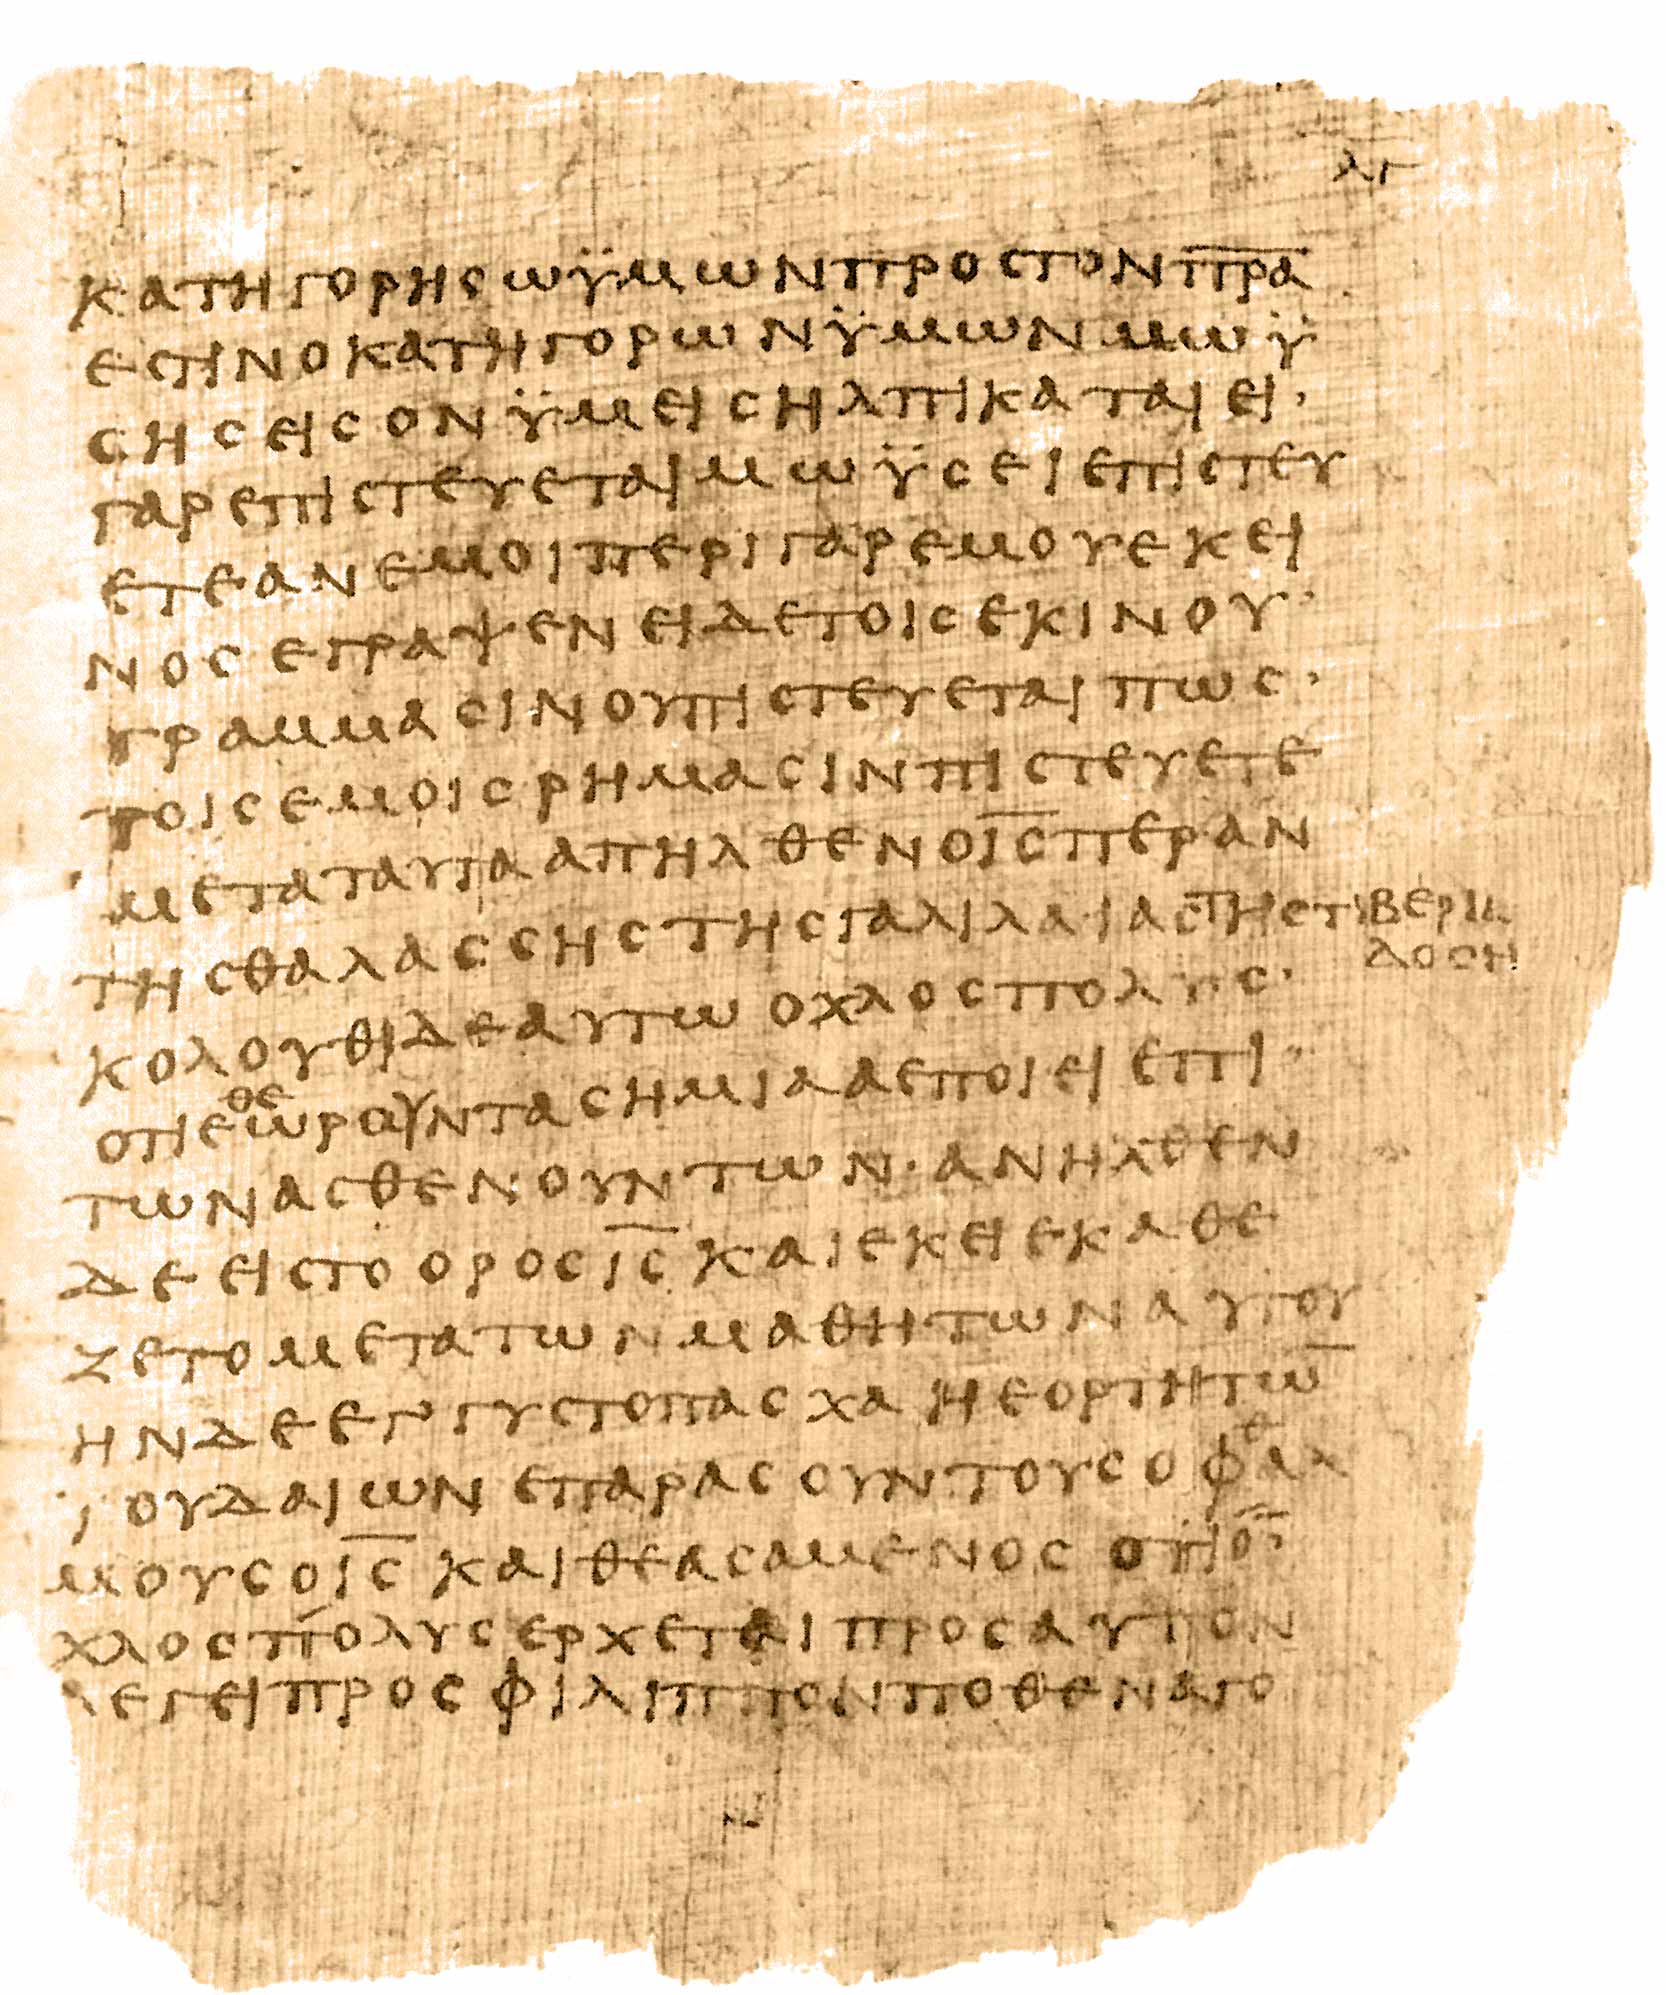 λγ
κατηγορησωϋμωνπροστονπ̅ρ̅α̅
εστινοκατηγορωνϋμωνμωϋ
σησεισονϋμεισηλπικαταιει·
γαρεπιστευεταιμωϋσειεπιστευ
ετεανεμοιπεριγαρεμουεκει
νοσεγραψενειδετοισεκινου·
γραμμασινουπιστευεταιπωσ·
τοισεμοισρημασινπιστευετε
μεταταυτααπηλθενοι̅σ̅περαν
τησθαλασσησтησγαλιλαιαστηστιβερια
δοση
κολουθιδεαυτωοχλοσπολυσ·
θε
οτιεωρουντασημιααεποιειεπι·
τωνασθενουντων·ανηλθεν
δεειστοοροσι̅σ̅καιεκειεκαθε
ζετομετατωνμαθητωναυτου
ηνδεεγγυστοπασχαηεορτητω̅
ϊουδαιωνεπαρασουντουσοφθαλ
μουσοι̅σ̅καιθεασαμενοσοτιο
χλοσπολυσερχεταιπροσαυτον
λεγειπροσφιλιππονποθεναγο